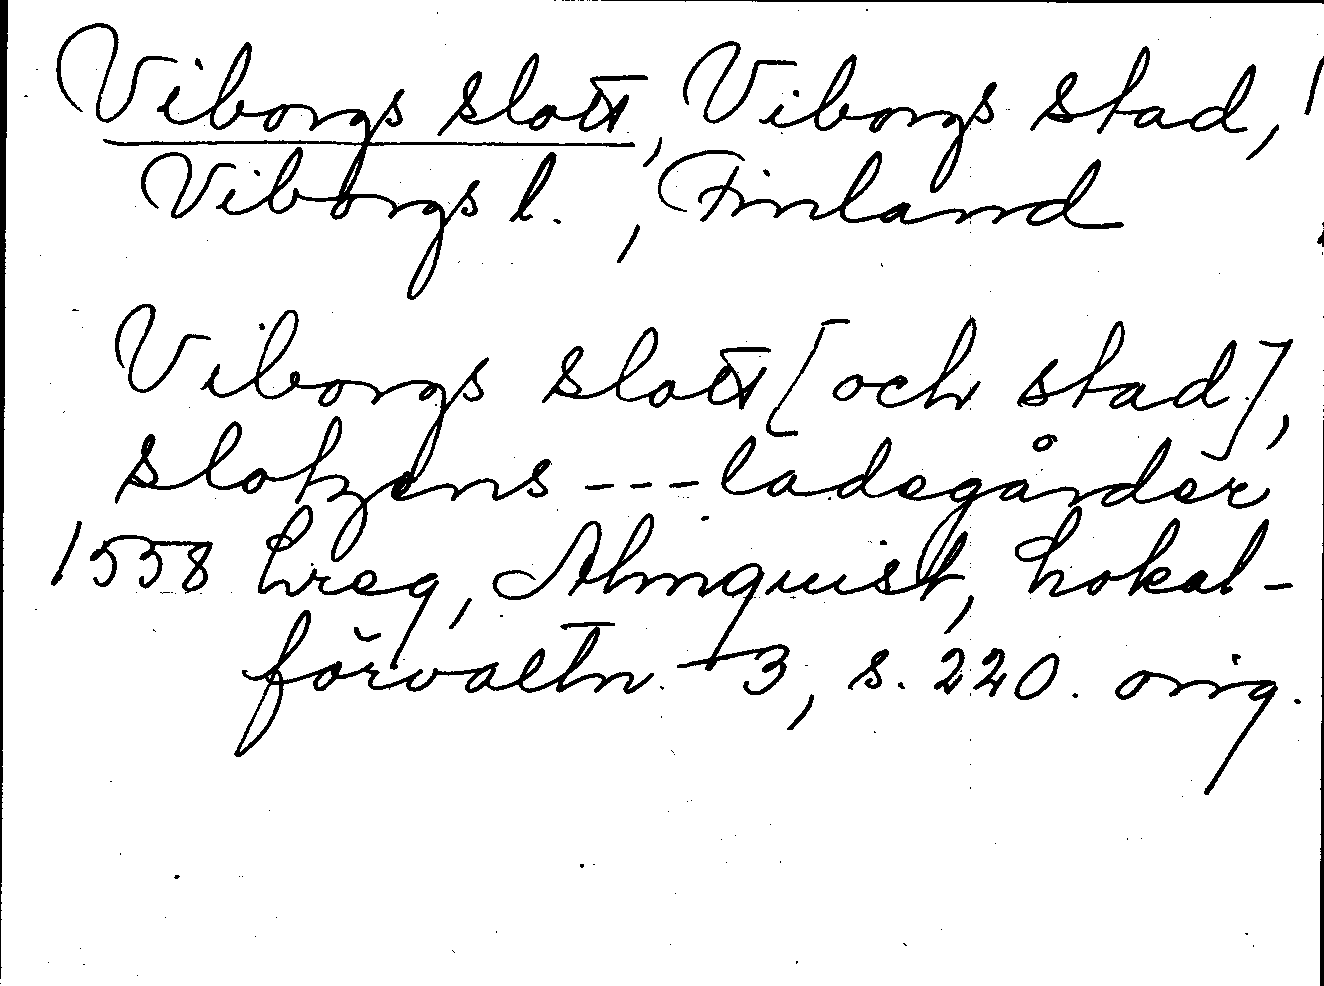 Viborgs slott, Viborgs stad,
Viborgs l., Finland
Viborgs slott [och stad],
slotzens --- ladegårder
1558 Lreg, Almquist, Lokal-
förvaltn. 3, s. 220. orig.